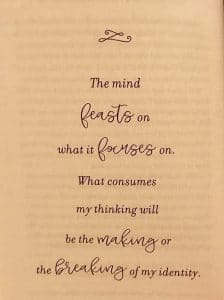 The mind
feasts on
what it focuses on.
What consumes
my thinking will
be the making or
the breaking of my identity.